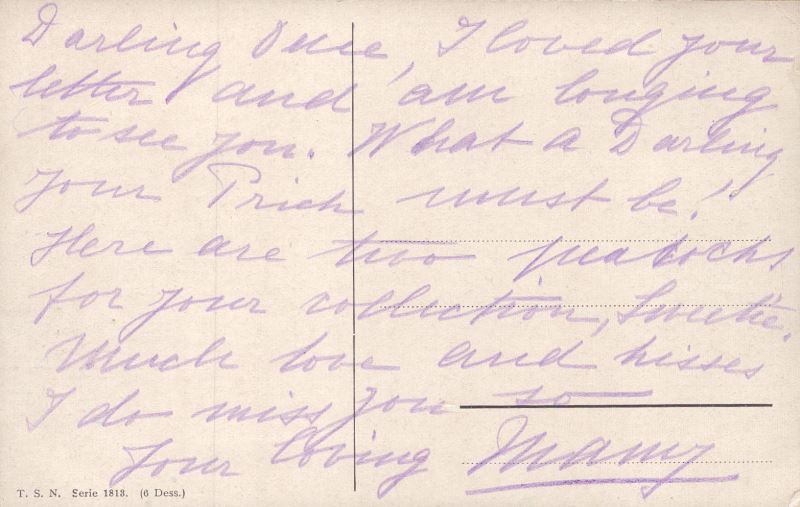 Darling I loved your
letter and am longing
to see you. What a Darling
your must be!
Here are two peacocks
for your collection, Sweetie.
Much love and kisses
I do miss you so
Your loving Mamy
T. S. N. Serie 1813. (6 Dess.)